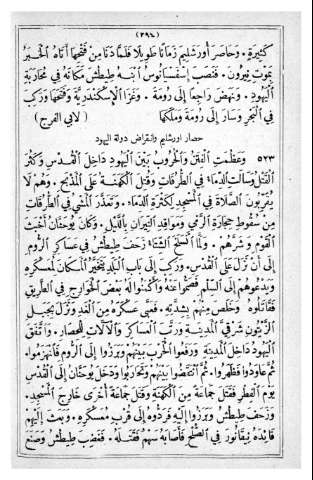 (٢٩٤)
كَثِيرَةٍ. وَحَاصَرَ أُورَشَلِيمَ زَمَانًا طَوِيلًا فَلَمَّا دَنَا مِنْ فَتْحِهَا أَتَاهُ الْخَبَرُ
بِمَوْتِ نِيرُونَ. فَنَصَبَ إِسْفَسْيَانُوسُ ٱبْنَهُ طِيطُشَ مَكَانَهُ فِي مُحَارَبَةِ
الْيَهُودِ. وَنَهَضَ رَاجِعًا إِلَى رُومَةَ. وَغَزَا الْإِسْكَنْدَرِيَّةَ وَفَتَحَهَا وَرَكِبَ
فِي الْبَحْرِ وَسَارَ إِلَى رُومَةَ وَمَلَكَهَا (لابي الفرج)
حصار اورشليم وانقراض دولة اليهود
٥٢٣ وَعَظُمَتِ الْفِتَنُ وَالْحُرُوبُ بَيْنَ الْيَهُودِ دَاخِلَ الْقُدْسِ وَكَثُرَ
الْقَتْلُ وَسَالَتِ الدِّمَاءُ فِي الطُّرُقَاتِ وَقُتِلَ الْكَهَنَةُ عَلَى الْمَذْبَحِ. وَهُمْ لَا
يَقْرَبُونَ الصَّلَاةَ فِي الْمَسْجِدِ لِكَثْرَةِ الدِّمَاءِ. وَتَعَذَّرَ الْمَشْيُ فِي الطُّرُقَاتِ
مِنْ سُقُوطِ حِجَارَةِ الرَّمْيِ وَمَوَاقِدِ النِّيرَانِ بِاللَّيْلِ. وَكَانَ يُوحَنَّانُ أَخْبَثَ
الْقَوْمِ وَشَرَّهُمْ. وَلَمَّا ٱنْسَلَخَ الشِّتَاءُ زَحَفَ طِيطُشُ فِي عَسَاكِرِ الرُّومِ
إِلَى أَنْ نَزَلَ عَلَى الْقُدْسِ. وَرَكِبَ إِلَى بَابِ الْبَلَدِ يَتَخَيَّرُ الْمَكَانَ لِمُعَسْكَرِهِ
وَيَدْعُوهُمْ إِلَى السِّلْمِ فَصَمُّوا عَنْهُ وَأَكْمَنُوا لَهُ بَعْضَ الْخَوَارِجِ فِي الطَّرِيقِ
فَقَاتَلُوهُ وَخَلَصَ مِنْهُمْ بِشِدَّتِهِ. فَعَبَّى عَسْكَرَهُ مِنَ الْغَدِ وَنَزَلَ بِجَبَلِ
الزَّيْتُونِ شَرْقِيَّ الْمَدِينَةِ وَرَتَّبَ الْعَسَاكِرَ وَالْآلَاتِ لِلْحِصَارِ. وَٱتَّفَقَ
الْيَهُودُ دَاخِلَ الْمَدِينَةِ وَرَفَعُوا الْحَرْبَ بَيْنَهُمْ وَبَرَزُوا إِلَى الرُّومِ فَٱنْهَزَمُوا.
ثُمَّ عَاوَدُوا فَظَهَرُوا. ثُمَّ ٱنْتَقَضُوا بَيْنَهُمْ وَتَحَارَبُوا وَدَخَلَ يُوحَنَّانُ إِلَى الْقُدْسِ
يَوْمَ الْفِطْرِ فَقَتَلَ جَمَاعَةً مِنَ الْكَهَنَةِ وَقَتَلَ جَمَاعَةً أُخْرَى خَارِجَ الْمَسْجِدِ.
وَزَحَفَ طِيطُشُ وَبَرَزُوا إِلَيْهِ فَرَدُّوهُ إِلَى قُرْبِ مُعَسْكَرِهِ. وَبَعَثَ إِلَيْهِمْ
قَائِدَهُ نِيقَانُورَ فِي الصُّلْحِ فَأَصَابَهُ سَهْمٌ فَقَتَلَهُ. فَغَضِبَ طِيطُشُ وَصَنَعَ